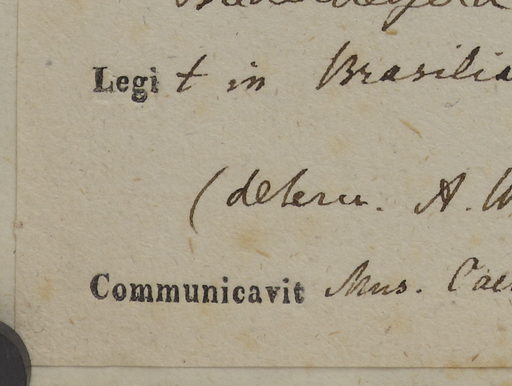 Legit in Brasilia
(determ. A.
Communicavit Mus. Cae